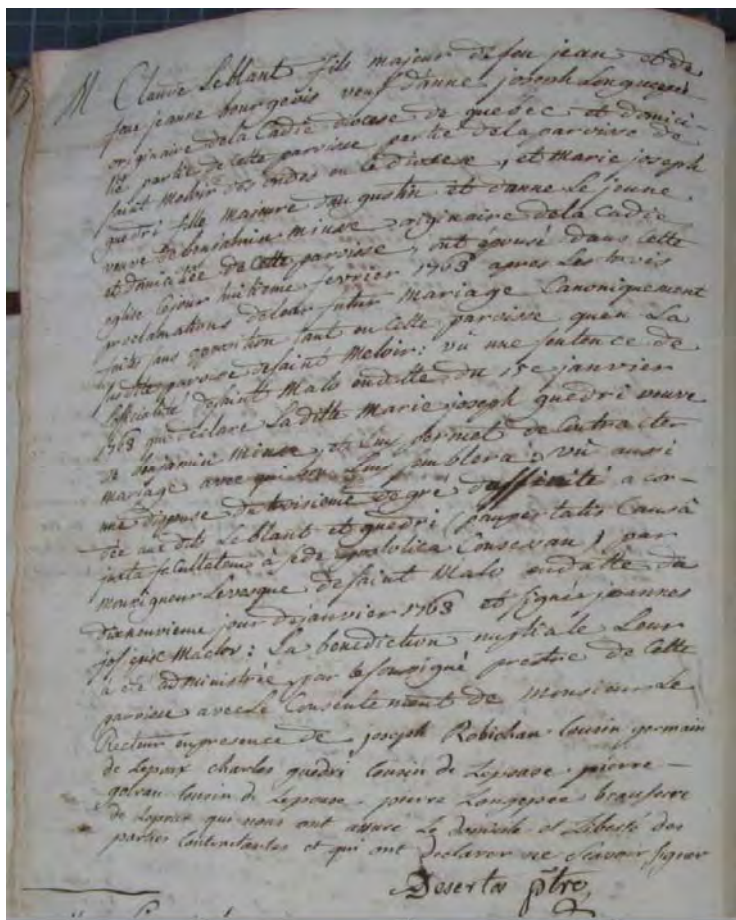 M Claude Leblant fils majeur de feu jean et de
feue jeanne bourgeois veuf d'anne joseph Longuepee
originaire de la Cadie diocese de quebec et domici-
lié partie de cette paroisse partie de la paroisse de
saint Meloir des ondes en ce diocese, et Marie joseph
guedri fille majeure d'augustin et d'anne Le jeune
veuve de benjamin miuse originaire de la Cadie
et domiciliée de Cette paroisse, ont épousé dans Cette
eglise Cejour huitieme fevrier 1763 apres Les trois
proclamations de leur futur Mariage Canoniquement
faites sans opposition tant en Cette paroisse quen La
susditte paroisse de saint Meloir: vu une sentence de
lofficialité de saint Malo en datte du 15e janvier
1763 qui declare Laditte Marie joseph guedri veuve
de benjamin Miuse, et Luy permet de Contracter
mariage avec qui bon Luy semblera, vu aussi
une dispense du troisieme degre daffinité accor-
dée aux dits Leblant et guedri (paupertatis Causâ
juxta facultatem à sede apostolica) par
monseigneur Levesque de saint Malo en datte du
dixneuvieme jour de janvier 1763 et signée joannes
jos episc Maclov: La benediction nuptiale Leur
a été administrée par le soussigné prestre de Cette
paroisse avec Le Consentement de Monsieur Le
Recteur en presence de joseph Robichau Cousin germain
de Lepoux charles guedri Cousin de Lepouse pierre
Cousin de Lepouse pierre Longepée beaufrere
de Lepoux qui nous ont assure Le domicile et Liberté des
parties Contractantes et qui ont declarer ne scavoir signer
Desertos ptre